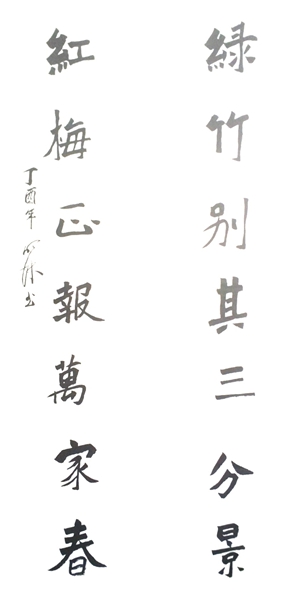 綠竹別其三分景
紅梅正報萬家春
丁酉年